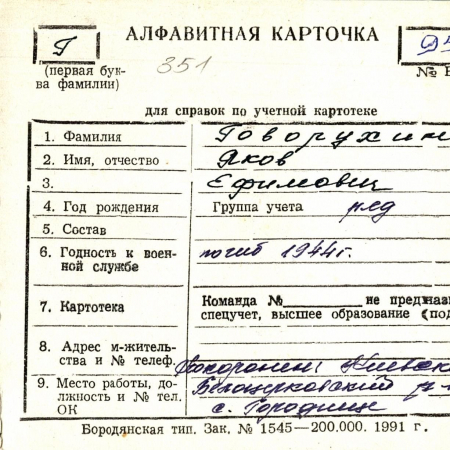 Г АЛФАВИТНАЯ КАРТОЧКА
(первая бук-
ва фамилии)
351
№ В
для справок по учетной картотеке
1. Фамилия Говорухин
2. Имя, отчество Яков
3. Ефимович
4. Год рождения Группа учета ряд
5. Состав
6. Годность к воен-
ной службе погиб 1944 г.
7. Картотека Команда № не предназ
спецучет, высшее образование (под
8. Адрес м-житель-
ства и № телеф. Похоронен: Киевск
9. Место работы, до-
лжность и № тел.
ОК
Белоцерковский р-
с. Городище
Бородянская тип. Зак. № 1545—200.000. 1991 г.